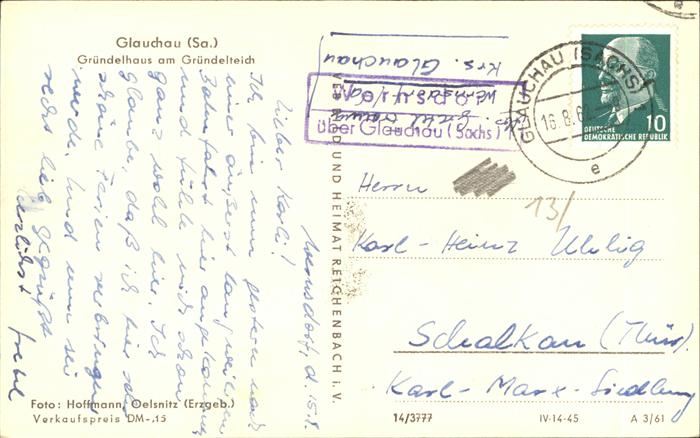 Glauchau (Sa.)
Gründelhaus am Gründelteich
Wernsdorf, d. 15.8.
Lieber Karli!
Ich bin nun gestern nach
einer äußerst langweiligen
Bahnfahrt hier angekommen
und fühle mich schon
ganz wohl hier. Ich
glaube, daß ich hier sehr
schöne Ferien verbringen
werde. Und nun sei
recht lieb gegrüßt
herzlichst
Foto: Hoffmann, Oelsnitz (Erzgeb.)
Verkaufspreis DM -.15
VEB BILD UND HEIMAT REICHENBACH i. V.
Wernsdorf
Krs. Glauchau
Wernsdorf
über Glauchau (Sachs)
GLAUCHAU (SACHS)
16.8.62
e
10
DEUTSCHE
DEMOKRATISCHE REPUBLIK
Herrn
13/
Karl-Heinz Uhlig
Schalkau (Thür.)
Karl-Marx-Siedlung
14/3777
IV-14-45
A 3/61